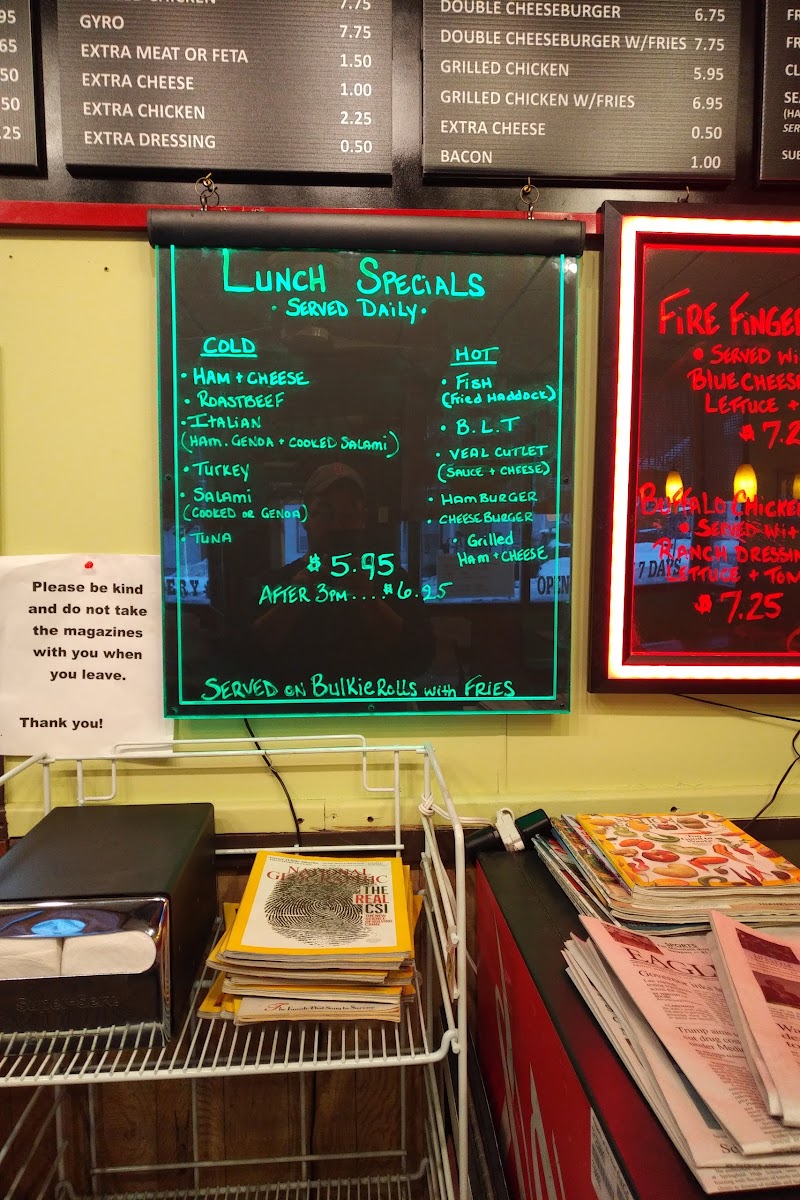 7.75
GYRO 7.75
EXTRA MEAT OR FETA 1.50
EXTRA CHEESE 1.00
EXTRA CHICKEN 2.25
EXTRA DRESSING 0.50
DOUBLE CHEESEBURGER 6.75
DOUBLE CHEESEBURGER W/FRIES 7.75
GRILLED CHICKEN 5.95
GRILLED CHICKEN W/FRIES 6.95
EXTRA CHEESE 0.50
BACON 1.00
LUNCH SPECIALS
• SERVED DAILY •
COLD
• HAM + CHEESE
• ROASTBEEF
• ITALIAN
(HAM. GENOA + COOKED SALAMI)
• TURKEY
• SALAMI
(COOKED OR GENOA)
• TUNA
HOT
• FISH
(FRIED HADDOCK)
• B.L.T
• VEAL CUTLET
(SAUCE + CHEESE)
• HAMBURGER
• CHEESEBURGER
• Grilled
HAM + CHEESE
$5.95
AFTER 3PM....$6.25
SERVED ON BULKIE ROLLS with FRIES
FIRE FINGER
• SERVED Wi
BLUE CHEES
LETTUCE +
$7.2
BUFFALO CHICKEN
• SERVED Wit
RANCH DRESSIN
LETTUCE + TOM
$7.25
OPEN
7 DAYS
Please be kind
and do not take
the magazines
with you when
you leave.
Thank you!
NATIONAL
GEOGRAPHIC
THE
REAL
CSI
SPORTS
EAGL
Trump aims